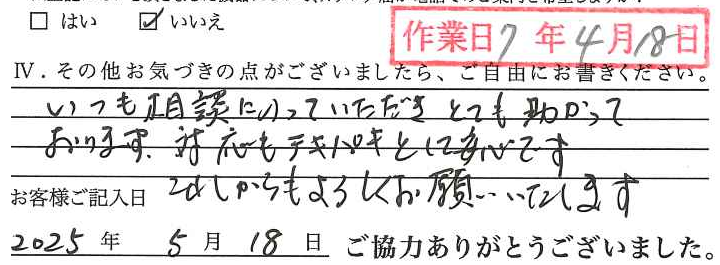 □ はい ☑ いいえ
作業日 7年4月18日
Ⅳ．その他お気づきの点がございましたら、ご自由にお書きください。
いつも相談にのっていただきとても助かって
おります。対応もテキパキとして安心です
これからもよろしくお願いいたします
お客様ご記入日
2025年 5月 18日 ご協力ありがとうございました。